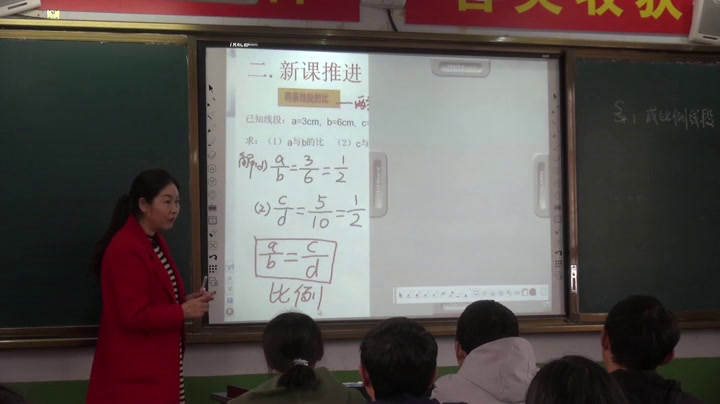 音美收获
二. 新课推进
两条线段的比
已知线段：a=3cm, b=6cm, c=
求：（1）a与b的比 （2）c与
解(1) a/b = 3/6 = 1/2
(2) c/d = 5/10 = 1/2
a/b = c/d
比例
成比例线段